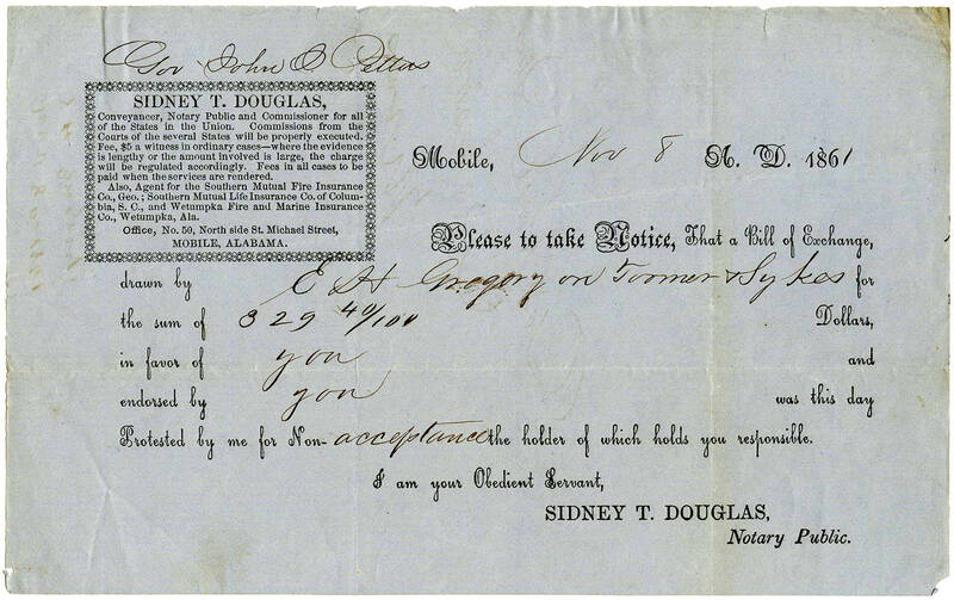 Gov John J Pettus
SIDNEY T. DOUGLAS,
Conveyancer, Notary Public and Commissioner for all
of the States in the Union. Commissions from the
Courts of the several States will be properly executed.
Fee, $5 a witness in ordinary cases—where the evidence
is lengthy or the amount involved is large, the charge
will be regulated accordingly. Fees in all cases to be
paid when the services are rendered.
Also, Agent for the Southern Mutual Fire Insurance
Co., Geo.; Southern Mutual Life Insurance Co. of Colum-
bia, S. C., and Wetumpka Fire and Marine Insurance
Co., Wetumpka, Ala.
Office, No. 50, North side St. Michael Street,
MOBILE, ALABAMA.
Mobile, Nov 8 A. D. 1861
Please to take Notice, That a Bill of Exchange,
drawn by E H Gregory on Toomer & Sykes for
the sum of 329 40/100 Dollars,
in favor of you and
endorsed by you was this day
Protested by me for Non-acceptance the holder of which holds you responsible.
I am your Obedient Servant,
SIDNEY T. DOUGLAS,
Notary Public.